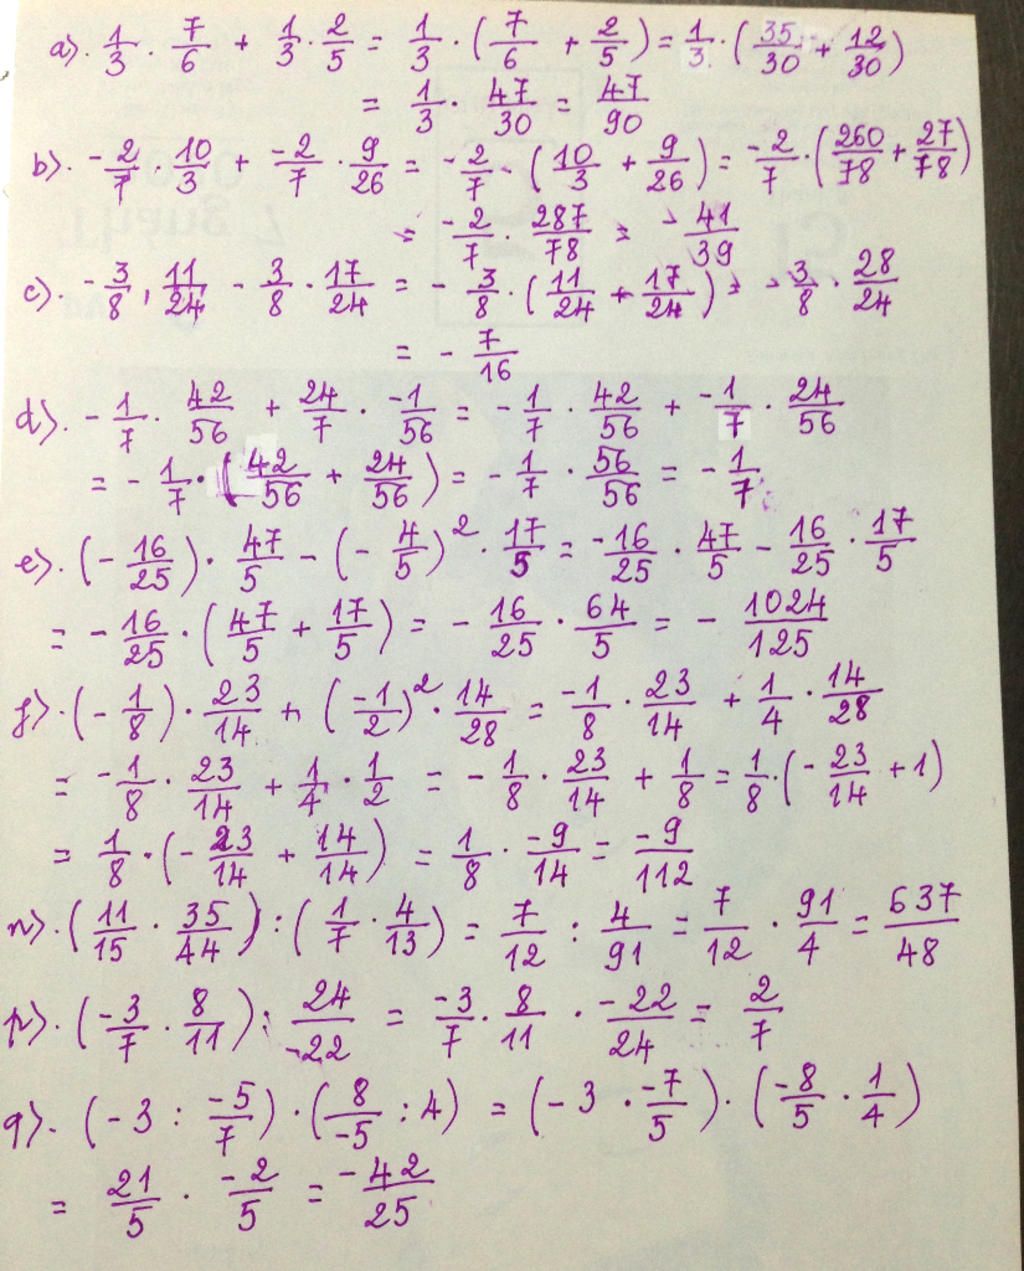 a). 1/3 · 7/6 + 1/3 · 2/5 = 1/3 · (7/6 + 2/5) = 1/3 · (35/30 + 12/30)
= 1/3 · 47/30 = 47/90
b). -2/7 · 10/3 + -2/7 · 9/26 = -2/7 · (10/3 + 9/26) = -2/7 · (260/78 + 27/78)
= -2/7 · 287/78 = -41/39
c). -3/8 · 11/24 - 3/8 · 17/24 = - 3/8 · (11/24 + 17/24) = -3/8 · 28/24
= - 7/16
d). - 1/7 · 42/56 + 24/7 · -1/56 = - 1/7 · 42/56 + -1/7 · 24/56
= - 1/7 · (42/56 + 24/56) = - 1/7 · 56/56 = - 1/7
e). (- 16/25) · 47/5 - (- 4/5)² · 17/5 = -16/25 · 47/5 - 16/25 · 17/5
= - 16/25 · (47/5 + 17/5) = - 16/25 · 64/5 = - 1024/125
f). (- 1/8) · 23/14 + (-1/2)² · 14/28 = -1/8 · 23/14 + 1/4 · 14/28
= -1/8 · 23/14 + 1/4 · 1/2 = - 1/8 · 23/14 + 1/8 = 1/8 · (- 23/14 + 1)
= 1/8 · (- 23/14 + 14/14) = 1/8 · -9/14 = -9/112
n). (11/15 · 35/44) : (1/7 · 4/13) = 7/12 : 4/91 = 7/12 · 91/4 = 637/48
p). (-3/7 · 8/11) : 24/-22 = -3/7 · 8/11 · -22/24 = 2/7
q). (-3 : -5/7) · (8/-5 : 4) = (-3 · -7/5) · (-8/5 · 1/4)
= 21/5 · -2/5 = -42/25